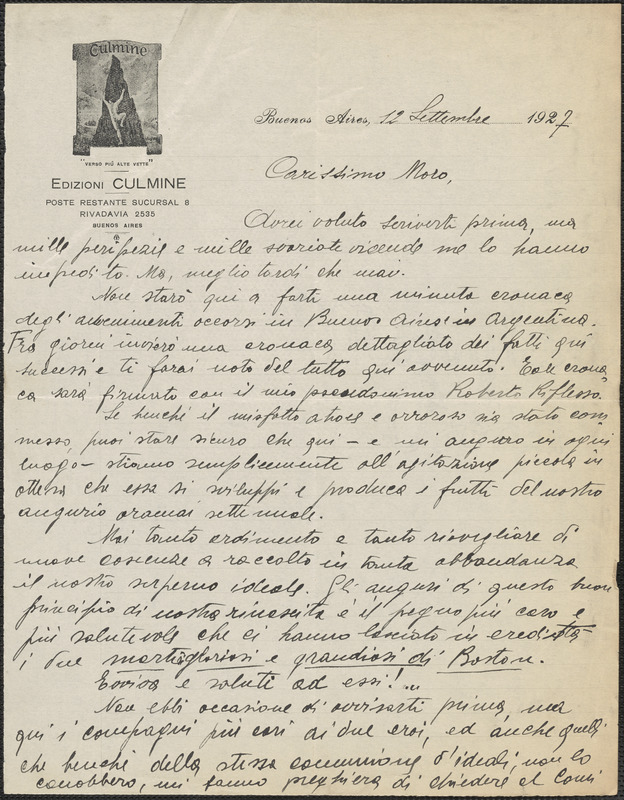 Culmine
"VERSO PIÚ ALTE VETTE"
EDIZIONI CULMINE
POSTE RESTANTE SUCURSAL 8
RIVADAVIA 2535
BUENOS AIRES
Buenos Aires, 12 Settembre 1927
Carissimo Moro,
Avrei voluto scriverti prima, ma
mille peripezie e mille svariate vicende me lo hanno
impedito. Ma, meglio tardi che mai.
Non starò qui a farti una minuta cronaca
degli avvenimenti occorsi in Buenos Aires e in Argentina.
Fra giorni invierò una cronaca dettagliata dei fatti qui
successi e ti farai noto del tutto qui avvenuto. crona
ca sarà firmata con il mio pseudonimo Roberto Riflesso.
Se benché il misfatto atroce e orroroso sia stato com
messo, puoi stare sicuro che qui - e mi auguro in ogni
luogo - stiamo semplicemente all'agitazione piccola in
attesa che essa si sviluppi e produca i frutti del nostro
augurio oramai
Mai tanto ardimento e tanto risvegliare di
nuove coscienze a raccolto in tanta abbondanza
il nostro superno ideale. Gli auguri di questo buon
principio di nostra rinascita è il pegno più caro e
più salutevole che ci hanno lasciato in eredità
i due martiri gloriosi e grandiosi di Boston.
Evviva e saluti ad essi!...
Non ebbi occasione di avvisarti prima, ma
qui i compagni più cari ai due eroi, ed anche quelli
che benché della stessa comunione d'ideali, non lo
conobbero, mi fanno preghiera di chiedere al Comi